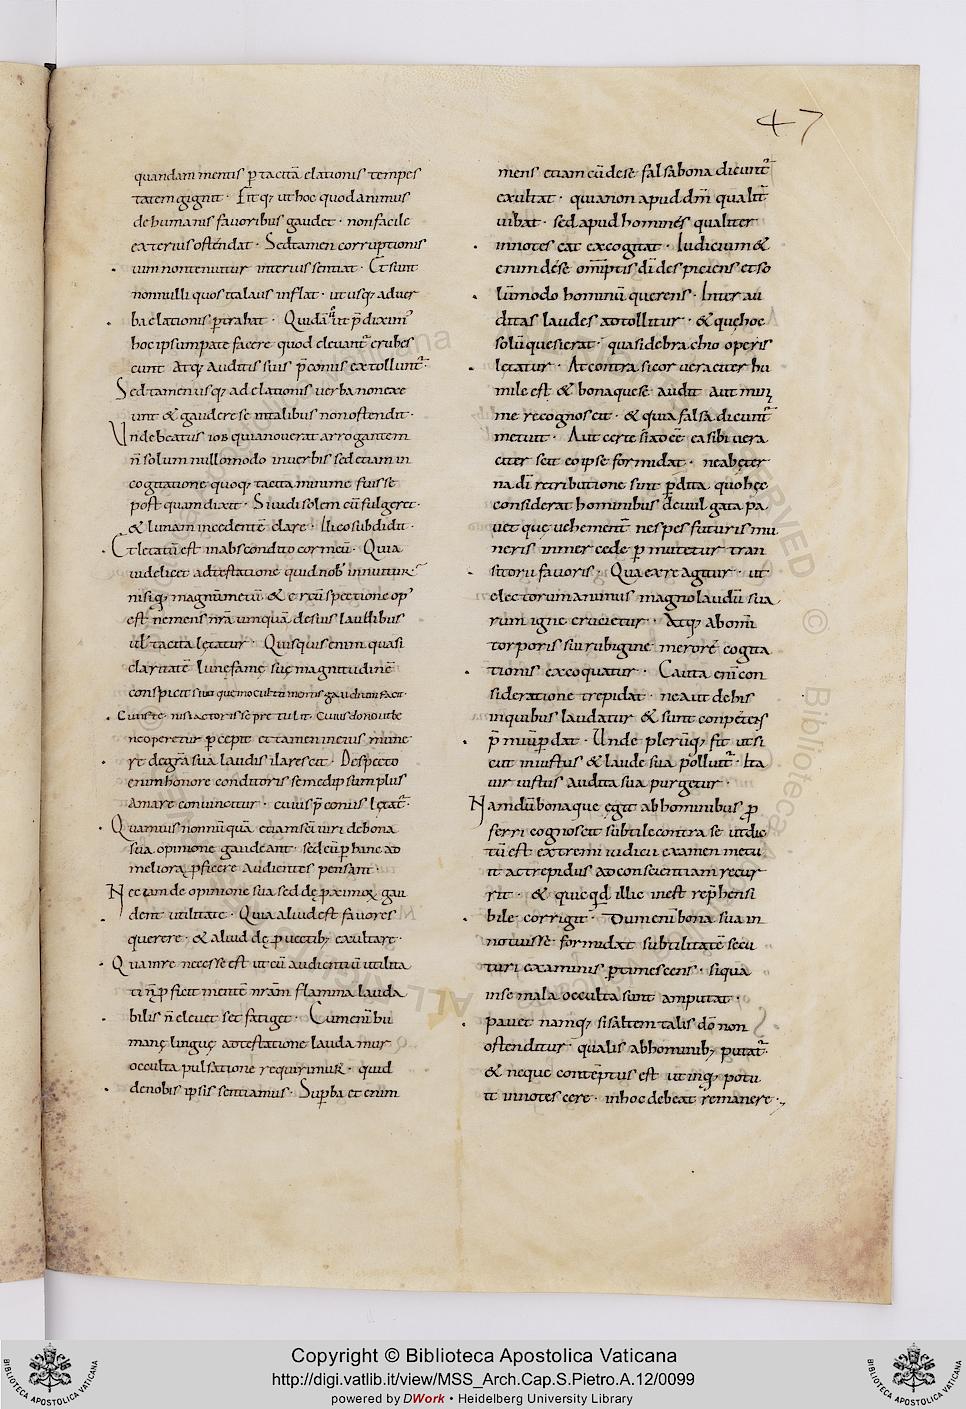 47
quandam mentis p̄ tacitā elationis tempes
tatem gignit · Fit q; ut hoc quod animus
de humanis favoribus gaudet · non facile
exterius ostendat · Sed tamen corruptionis
vim non tenuitur interius sentiat · Et sunt
nonnulli quos ita laus inflat · ut usq; ad ver
ba elationis ptrahat · Quidā
hoc ipsum pate facere quod elevant̄ erubes
cunt Atq; auditis suis p̄conus extollunt̄ ·
Sed tamen usq; ad elationis verba non exe
unt & gaudere se in talibus non ostendit ·
Unde beatus iob quia noverat arrogantem
n̄ solum nullomodo in verbis sed etiam in
cogitatione quoq; tacita minime fuisse
post quam dixit · Si vidi solem cū fulgeret ·
& lunam incedentē clare · Ilico subdidit ·
Et letatū est in abscondito cor meū · Quia
videlicet adtestatione quid nob'
nisi q; magnū metū & circūspectione op'
est ne mens nrā umquā de suis laudibus
ul' tacita lętatur · Quisquis enim quasi
claritatē lune famę suę magnitudinē
conspicit si in ea que in occultū mentis gaudium facit ·
Cui se nisi actoris se pretulit · Cuius dono ut be
ne operetur pcepit et tamen in eius mune
re de grā sua laudis ilarescit · Despecto
enim honore conditoris semedipsum plus
amare convincitur · cuius p̄conius lętat̄ ·
Quamvis nonnū quā etiam scī viri de bona
sua opinione gaudeant · sed cū p̄ hanc ad
meliora pficere audientes pensant ·
Nec iam de opinione sua sed de pximoꝝ gau
dent utilitate · Quia aliud est favores
querere · & aliud dę pvectib; exultare ·
Quamre necesse est ut cū audientiū utilita
ti n̄ pficit mentē nrām flamma lauda
bilis n̄ elevet set fatiget · Cum eni hu
manę linguę adtestatione laudamur
occulta pulsatione requirimur · quid
de nobis ipsis sentiamus · Supba et enim
mens etiam cū de se falsa bona dicunt̄
exultat · quia non apud dm̄ qualit̄
vibat · sed apud homines qualiter
innotescat excogitat · Iudicium &
enim de se omiptis di despiciens et so
lūmodo hominū querens · Inter au
ditas laudes adtollitur · & quę hoc
solū quesierat · quasi de bradio operis
lętatur · At contra si cor veraciter hu
mile est & bona que se audit aut mini
me recognoscit · & quia falsa dicunt̄
metuit · Aut certe si adeē ea sibi vera
citer scit eo ipse formidat · ne ab ęter
na di retributione sint pdita quo hęc
considerat hominibus devulgata pa
vet quę vehement̄ ne spes futuri mu
neris in mercede pmutetur tran
sitorii favoris · Qua ex re agitur · ut
electorum animus magno laudū sua
rum igne crucietur · Atq; ab omi
torporis sui rubigine meroré cogita
tionis excoquatur · Cauta eni con
sideratione trepidat · ne aut de his
in quibus laudatur & sunt conpetens
p̄miū pdat · Unde plerūq; fit ut si
cut iniustus & laude sua pollutt̄ · Ita
vir iustus audita sua purgetur ·
Nam dū bona que egit ab hominibus p
ferri cognoscit subtile contra se ut dic
tū est extremi iudicii examen metu
it ac trepidus ad conscientiam recur
rit · & quicqd illic inest rephensi
bile corrigit · Dum eni bona sua in
notuisse formidat subtilitatē secu
turi examinis ptimescens · siqua
in se mala occulta sunt amputat ·
pavet namq; si saltem talis do non
ostenditur qualis ab hominib; putat̄ ·
& neque contēptus est ut inq; potu
it innotescere · in hoc debeat remanere ·
Copyright © Biblioteca Apostolica Vaticana
http://digi.vatlib.it/view/MSS_Arch.Cap.S.Pietro.A.12/0099
powered by DWork • Heidelberg University Library
BIBLIOTECA APOSTOLICA VATICANA
BIBLIOTECA APOSTOLICA VATICANA